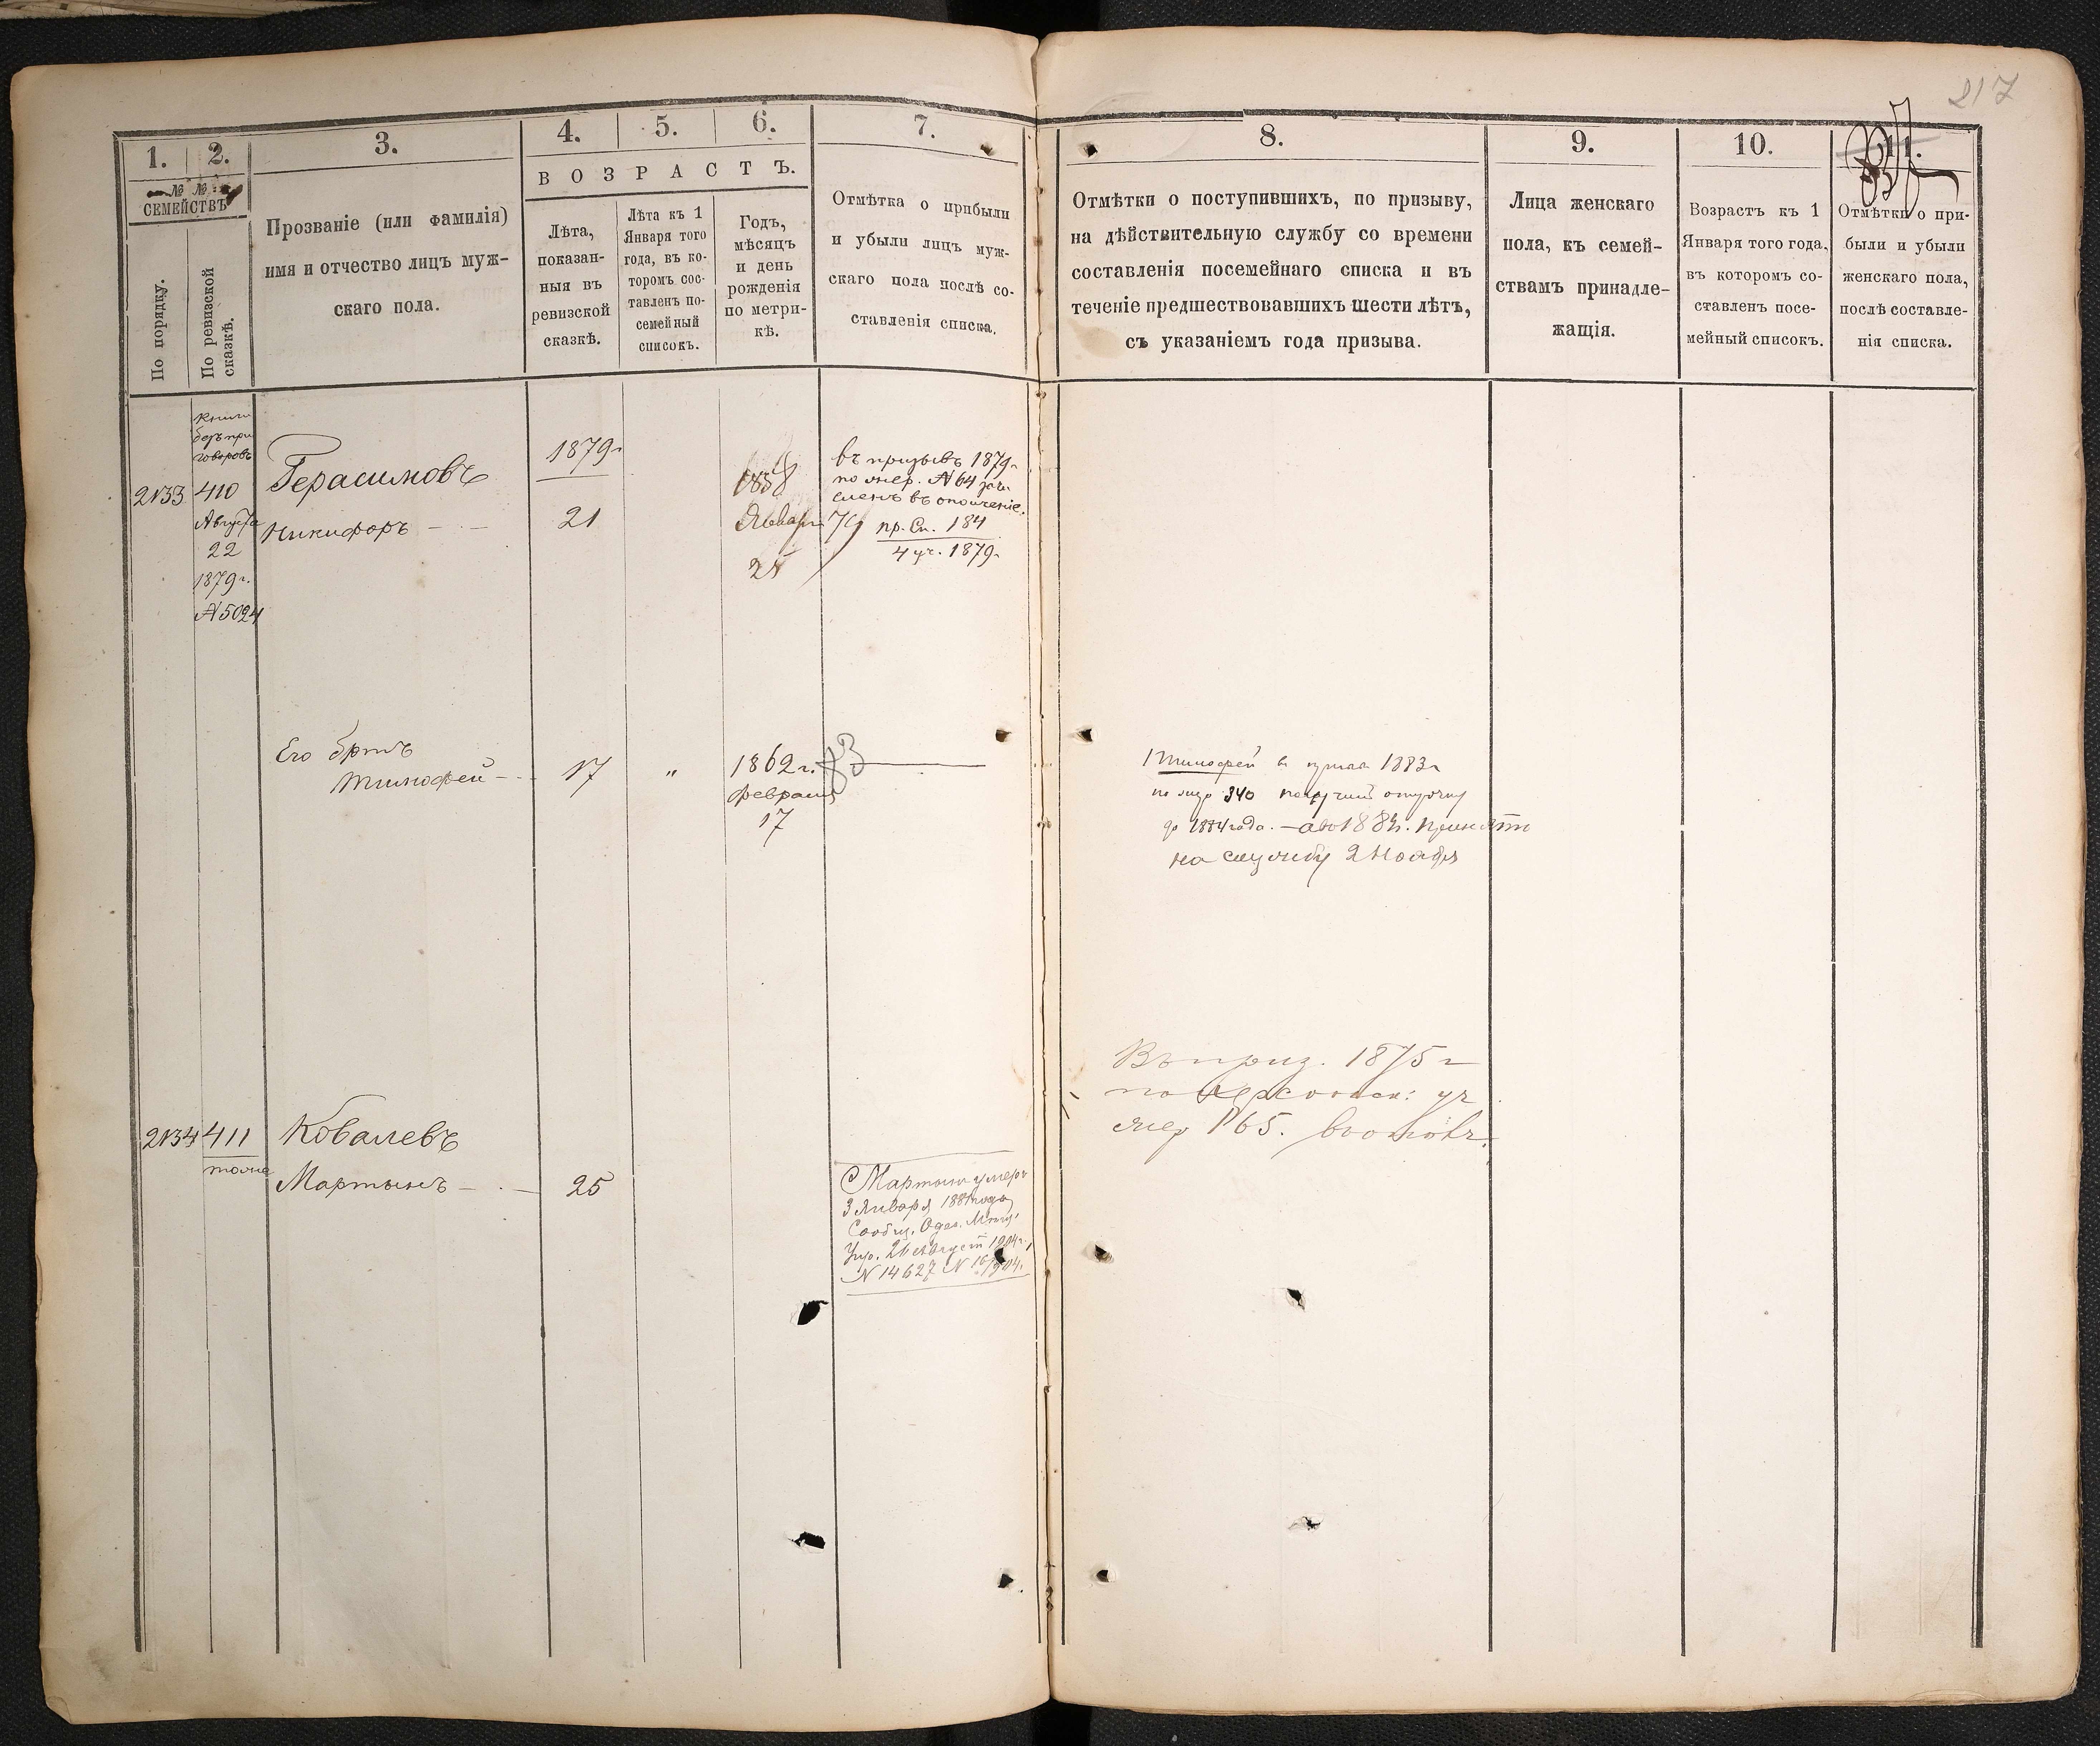 217
1.
2.
3.
4.
5.
6.
7.
8.
9.
10.
11.
№ №
СЕМЕЙСТВЪ
По порядку.
По ревизской
сказкѣ.
Прозваніе (или фамилія)
имя и отчество лицъ муж-
скаго пола.
ВОЗРАСТЪ.
Лѣта,
показан-
ныя въ
ревизской
сказкѣ.
Лѣта къ 1
Января того
года, въ ко-
торомъ сос-
тавленъ по-
семейный
списокъ.
Годъ,
мѣсяцъ
и день
рожденія
по метри-
кѣ.
Отмѣтка о прибыли
и убыли лицъ муж-
скаго пола послѣ со-
ставленія списка.
Отмѣтки о поступившихъ, по призыву,
на дѣйствительную службу со времени
составленія посемейнаго списка и въ
теченіе предшествовавшихъ шести лѣтъ,
съ указаніемъ года призыва.
Лица женскаго
пола, къ семей-
ствамъ принадле-
жащія.
Возрастъ къ 1
Января того года,
въ которомъ со-
ставленъ посе-
мейный списокъ.
Отмѣтки о при-
были и убыли
женскаго пола,
послѣ составле-
нія списка.
книги
безъ при
говоровъ
2133
410
Августа
22
1879 г.
№ 5024
Герасимовъ
Никифоръ
1879 г
21
1858
Январ
въ призывъ 1879 г
по жер. № 64 зачи
сленъ въ ополченіе.
79 пр. Сп. 184
4 уч. 1879 г
Его братъ
Тимофей
17
"
1862 г.
февраля
17
83
Тимофей въ 1883 г
по жер 340 получилъ отсрочку
до 1884 года. 1884 г. принятъ
на службу 2 Ноября
Въ приз. 1875 г
по Херсонск: уч
жер № 65.
2134
411
тоже
Ковалевъ
Мартынъ
25
Мартынъ умеръ
3 Января года
Сообщ. Одес. Мѣщ.
Упр. Август 1904 г.
№ 14627 №